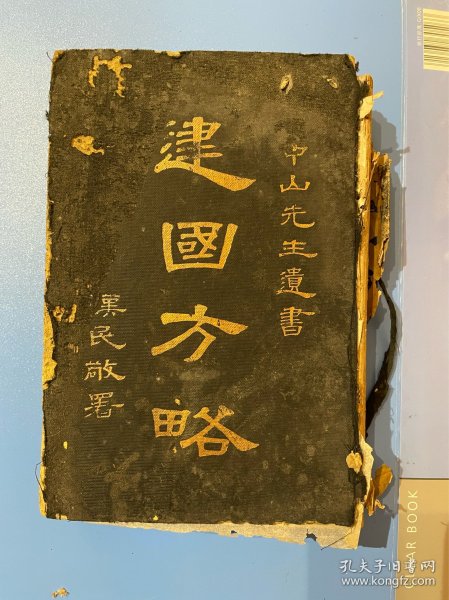 中山先生遺書
建國方略
漢民敬署
AR BOOK
孔夫子旧书网
www.kongfz.com